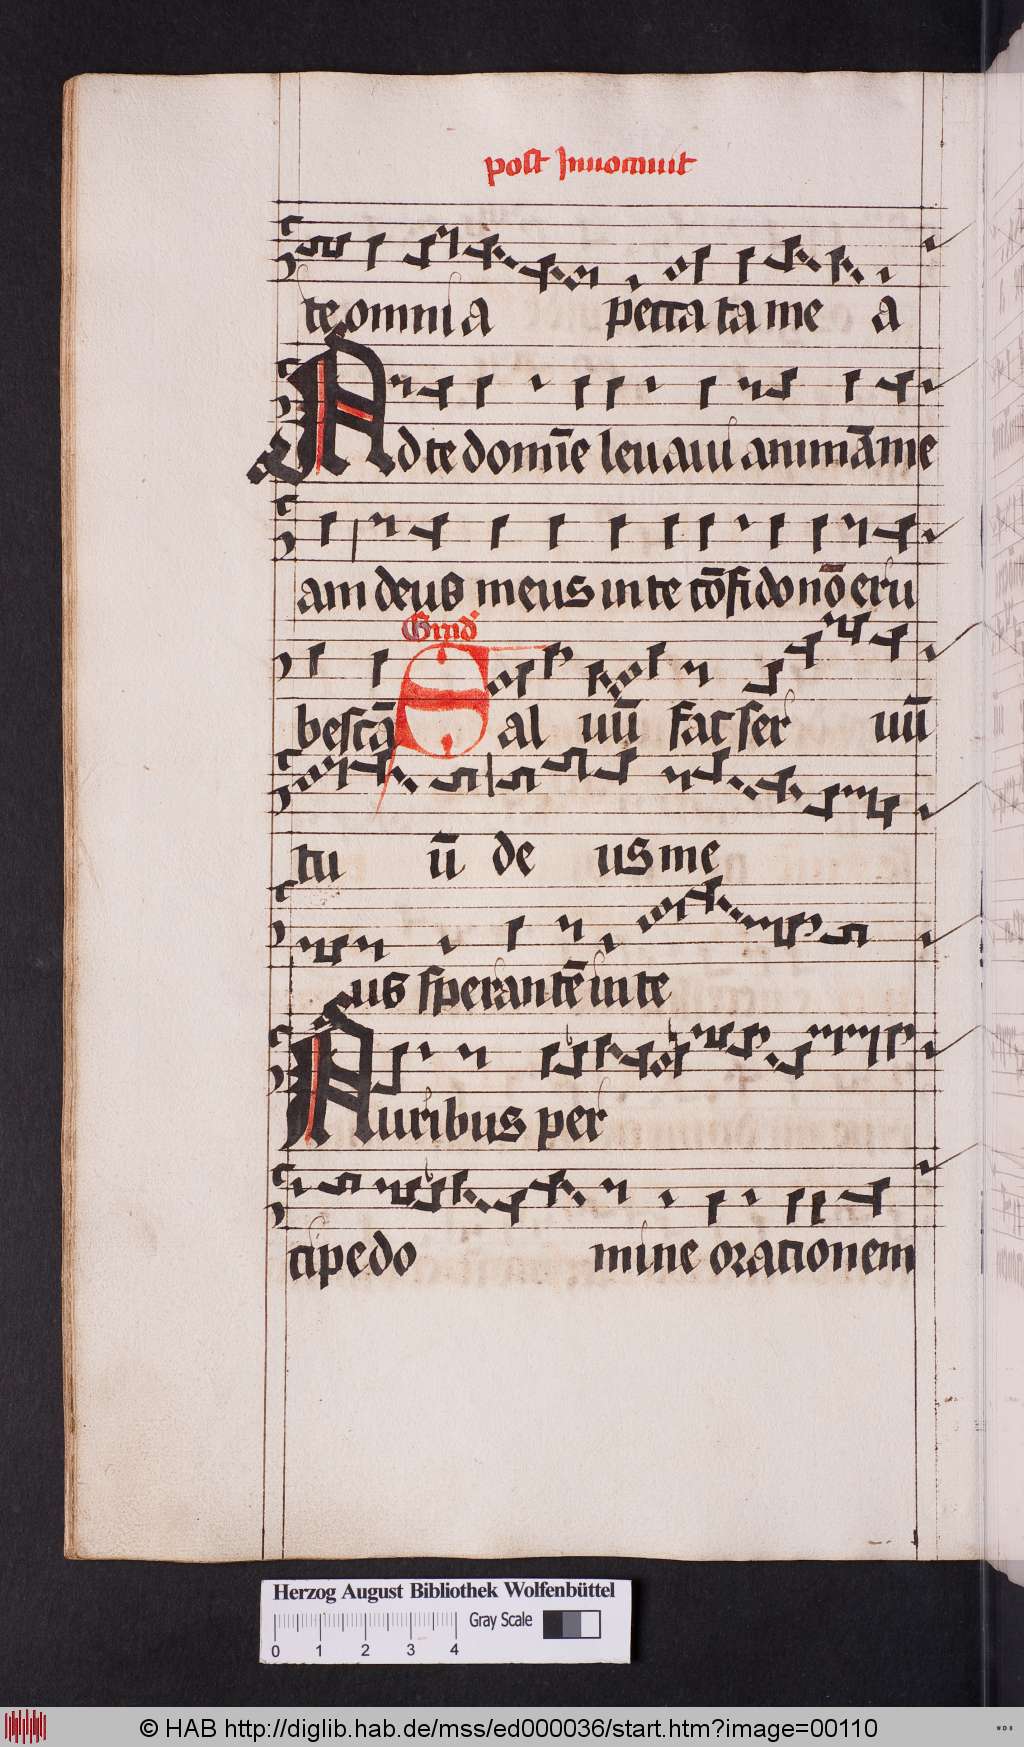 post Inuocauit
te omnia peccata mea
Ad te domīe leuaui animā me
am deus meus in te cōfido nō eru
bescā Grad' Saluū fac seruū
tuū deus me
us sperantē in te
Auribus per
cipe domine orationem
Herzog August Bibliothek Wolfenbüttel
Gray Scale
0 1 2 3 4
© HAB http://diglib.hab.de/mss/ed000036/start.htm?image=00110
WDB